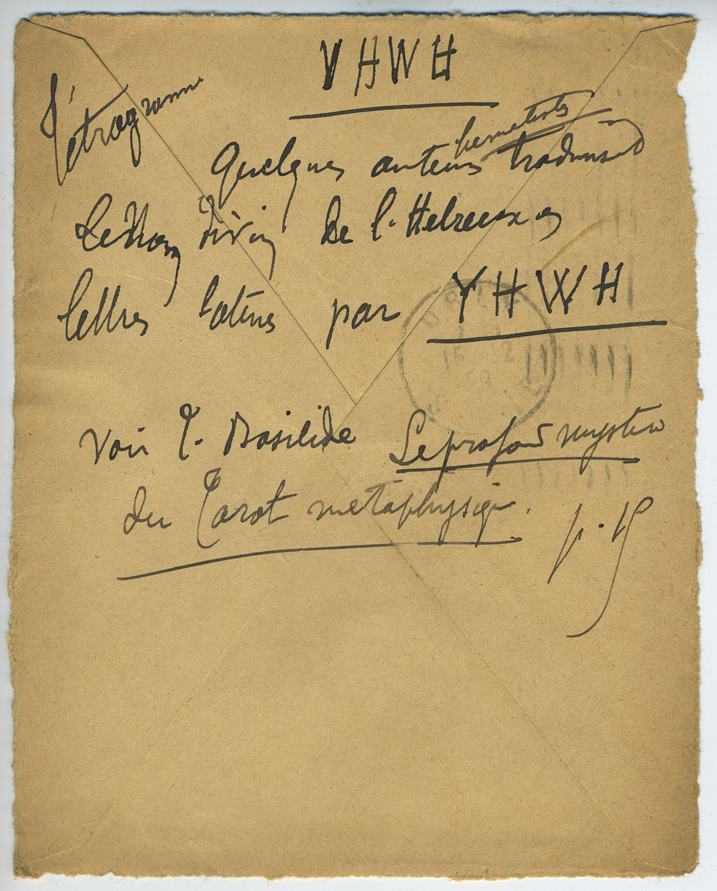 YHWH
Tétragramme
hermetistes
Quelques auteurs traduisent
le Nom Divin de l'Hebreu en
lettres latines par YHWH
Voir T. Basilide Le profond mystère
du Tarot métaphysique.